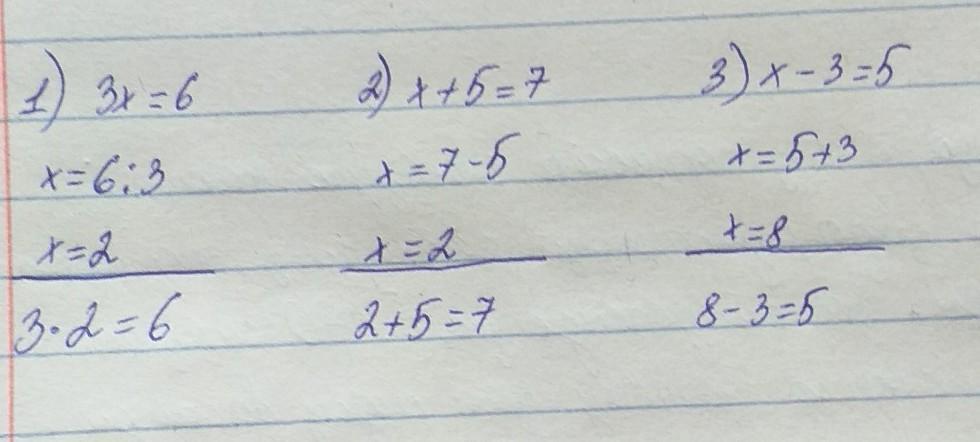 1) 3x=6
x=6:3
x=2
3·2=6
2) x+5=7
x=7-5
x=2
2+5=7
3) x-3=5
x=5+3
x=8
8-3=5